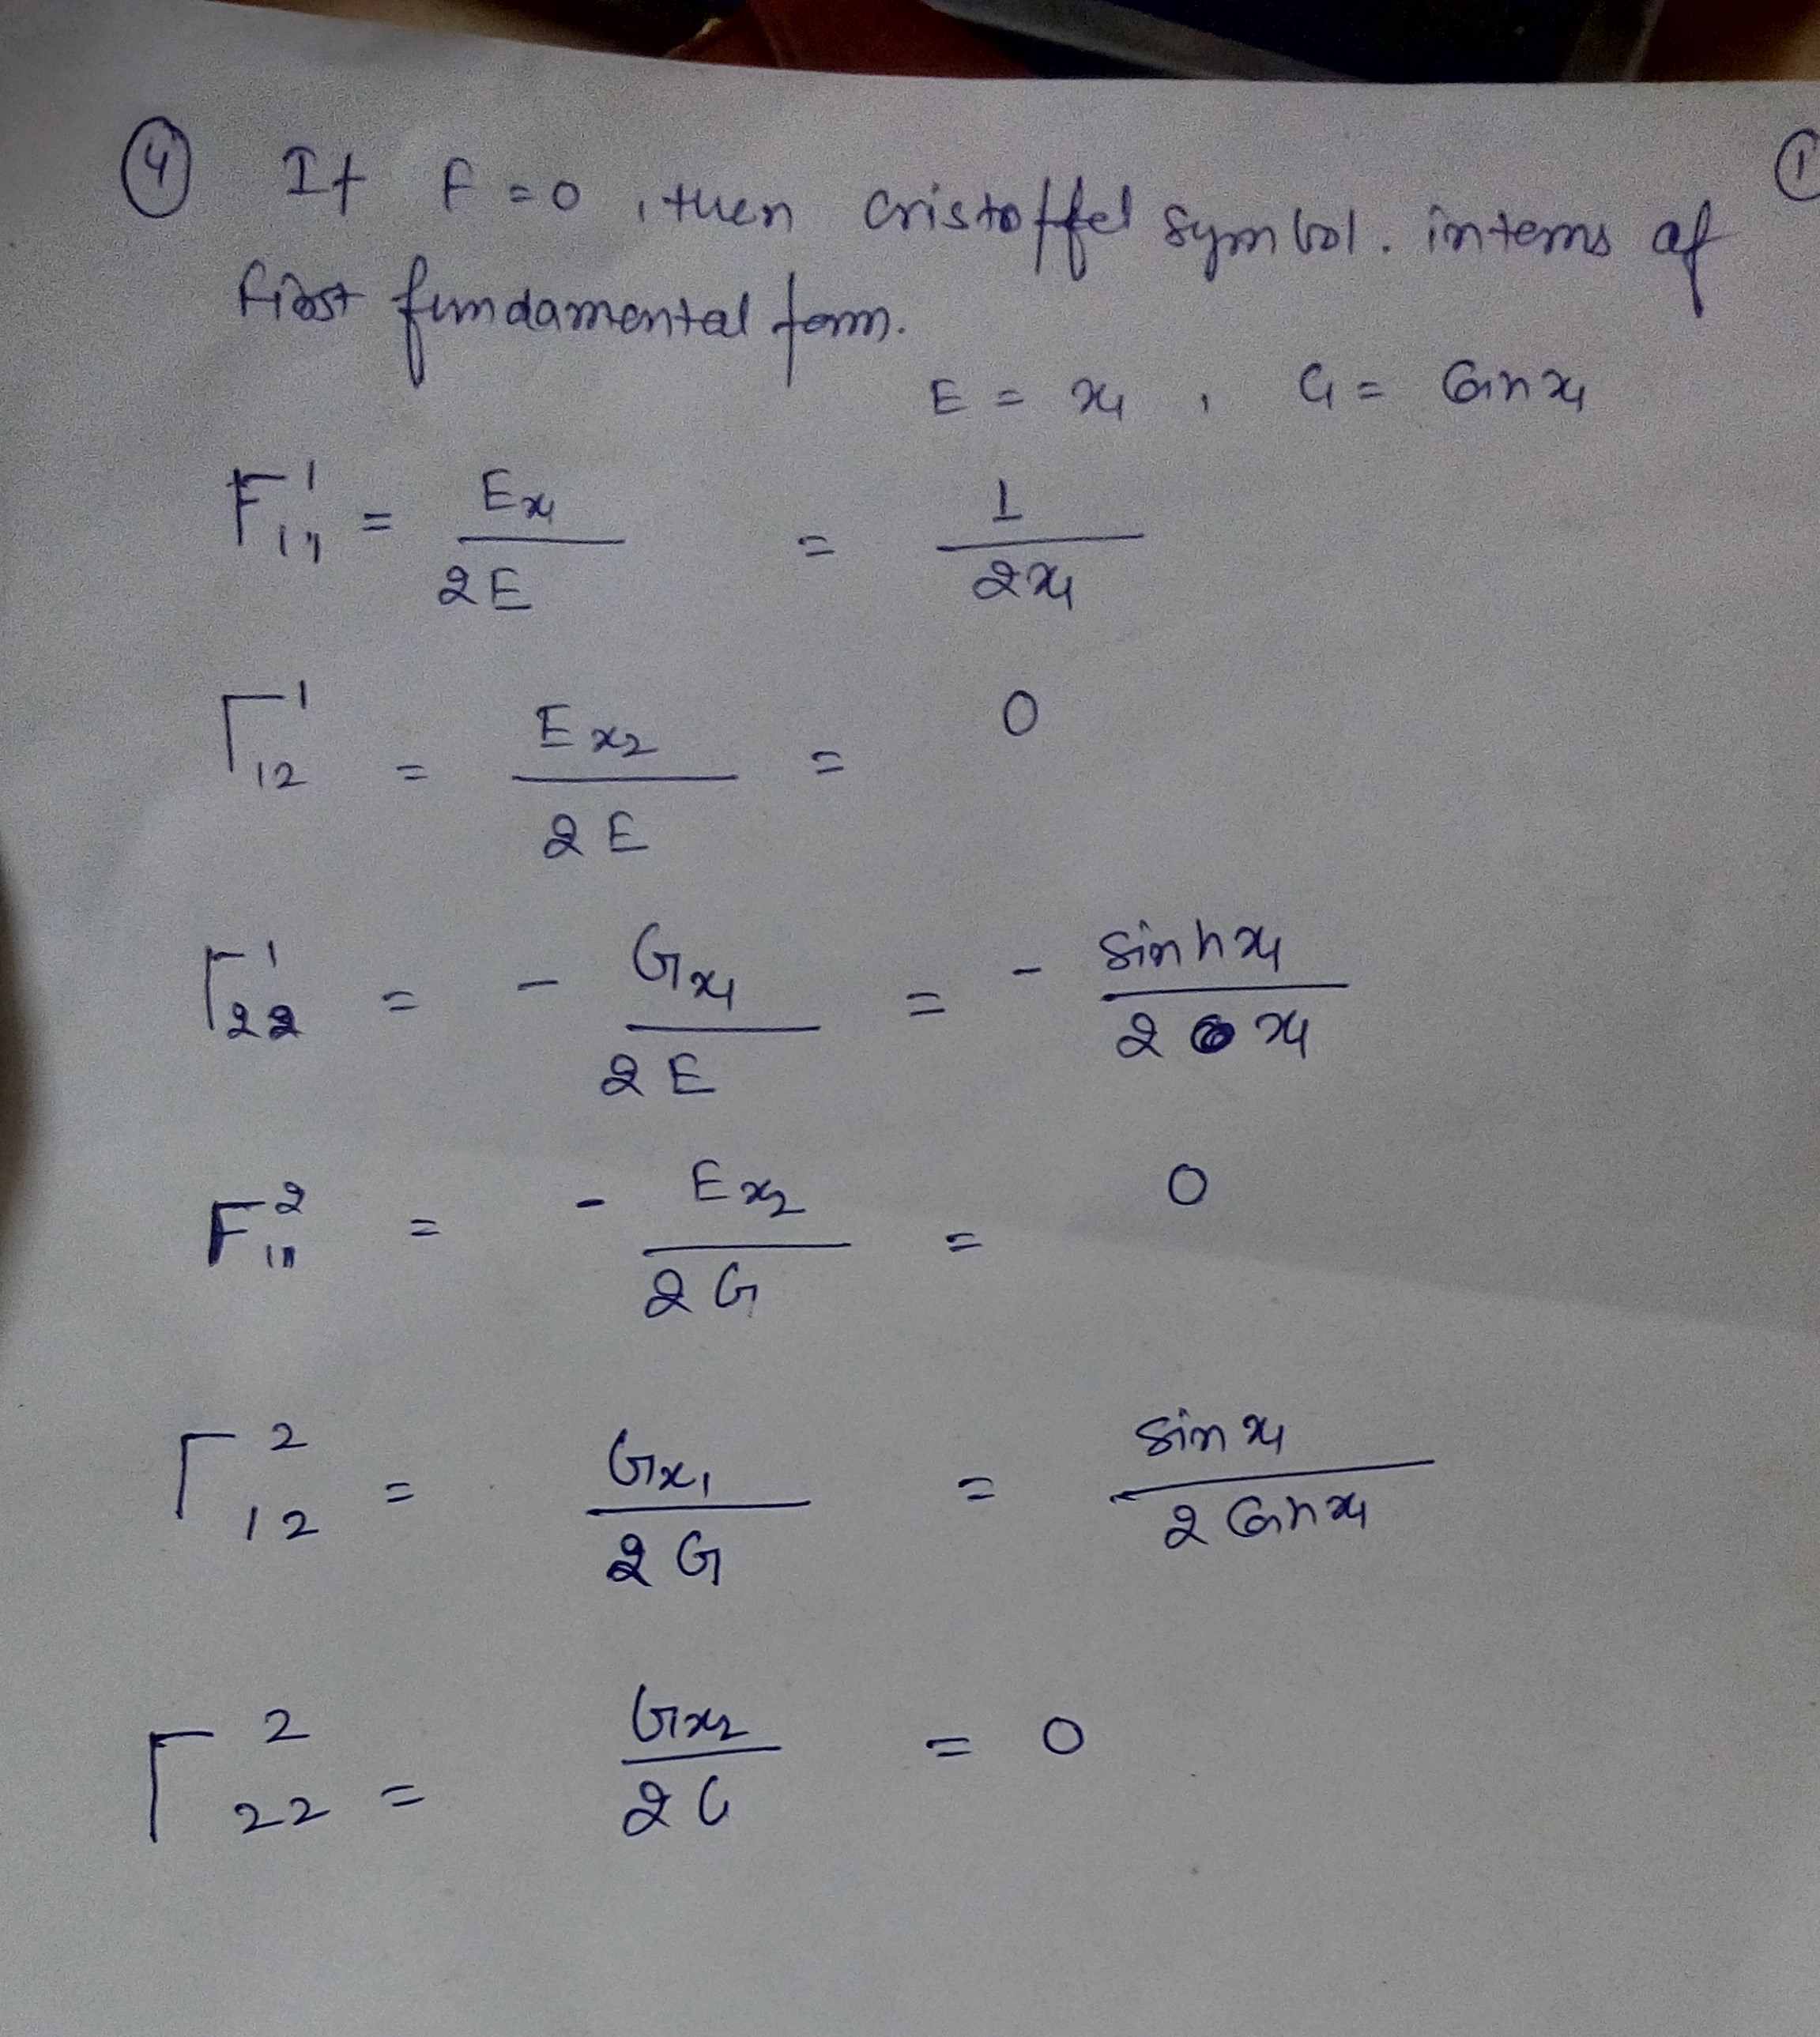 ④ If F = 0, then cristoffel symbol. interms of
first fundamental form.
E = x₁ , G = Coshx₁
Γ¹₁₁ = Ex₁ / 2E = 1 / 2x₁
Γ¹₁₂ = Ex₂ / 2E = 0
Γ¹₂₂ = - Gx₁ / 2E = - sinhx₁ / 2x₁
Γ²₁₁ = - Ex₂ / 2G = 0
Γ²₁₂ = Gx₁ / 2G = sinx₁ / 2Coshx₁
Γ²₂₂ = Gx₂ / 2G = 0